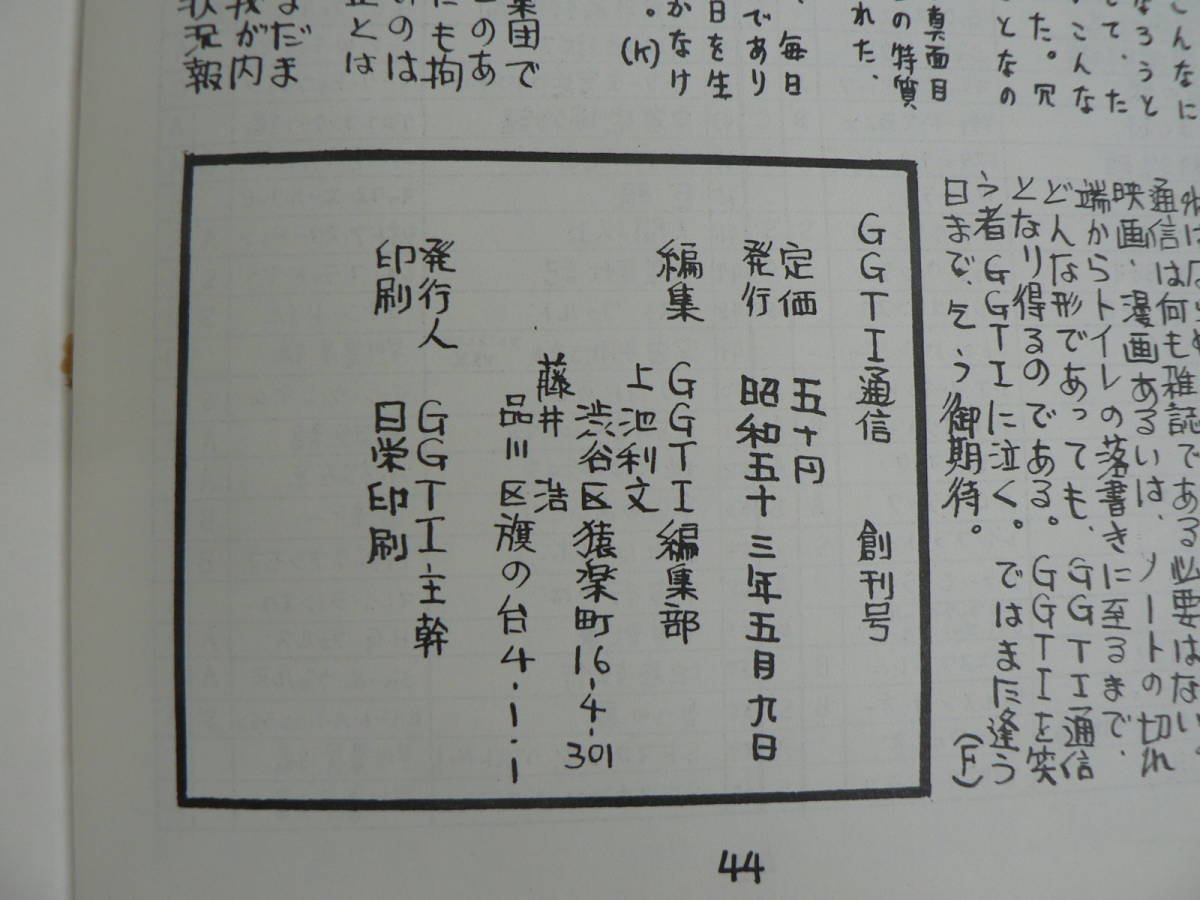 こんなに
なろうと
して、た
こんな
た。穴
となの
真面目
の特質
れた、
毎日
であり
日を生
かなけ
。(K)
集団で
このあ
にも拘
いのは
とは
まだま
我が内
状況報
通信は何も雑誌である必要はない。
映画、漫画あるいは、ノートの切れ
端からトイレの落書きに至るまで、
どんな形であっても、GGTI通信
となり得るのである。GGTIを笑
う者GGTIに泣く。ではまた逢う
日まで、乞う御期待。(F)
GGTI通信 創刊号
定価 五十円
発行 昭和五十三年五月九日
編集 GGTI編集部
上池利文
渋谷区猿楽町16-4-301
藤井 浩
品川区旗の台4-1-1
発行人 GGTI主幹
印刷 日栄印刷
44